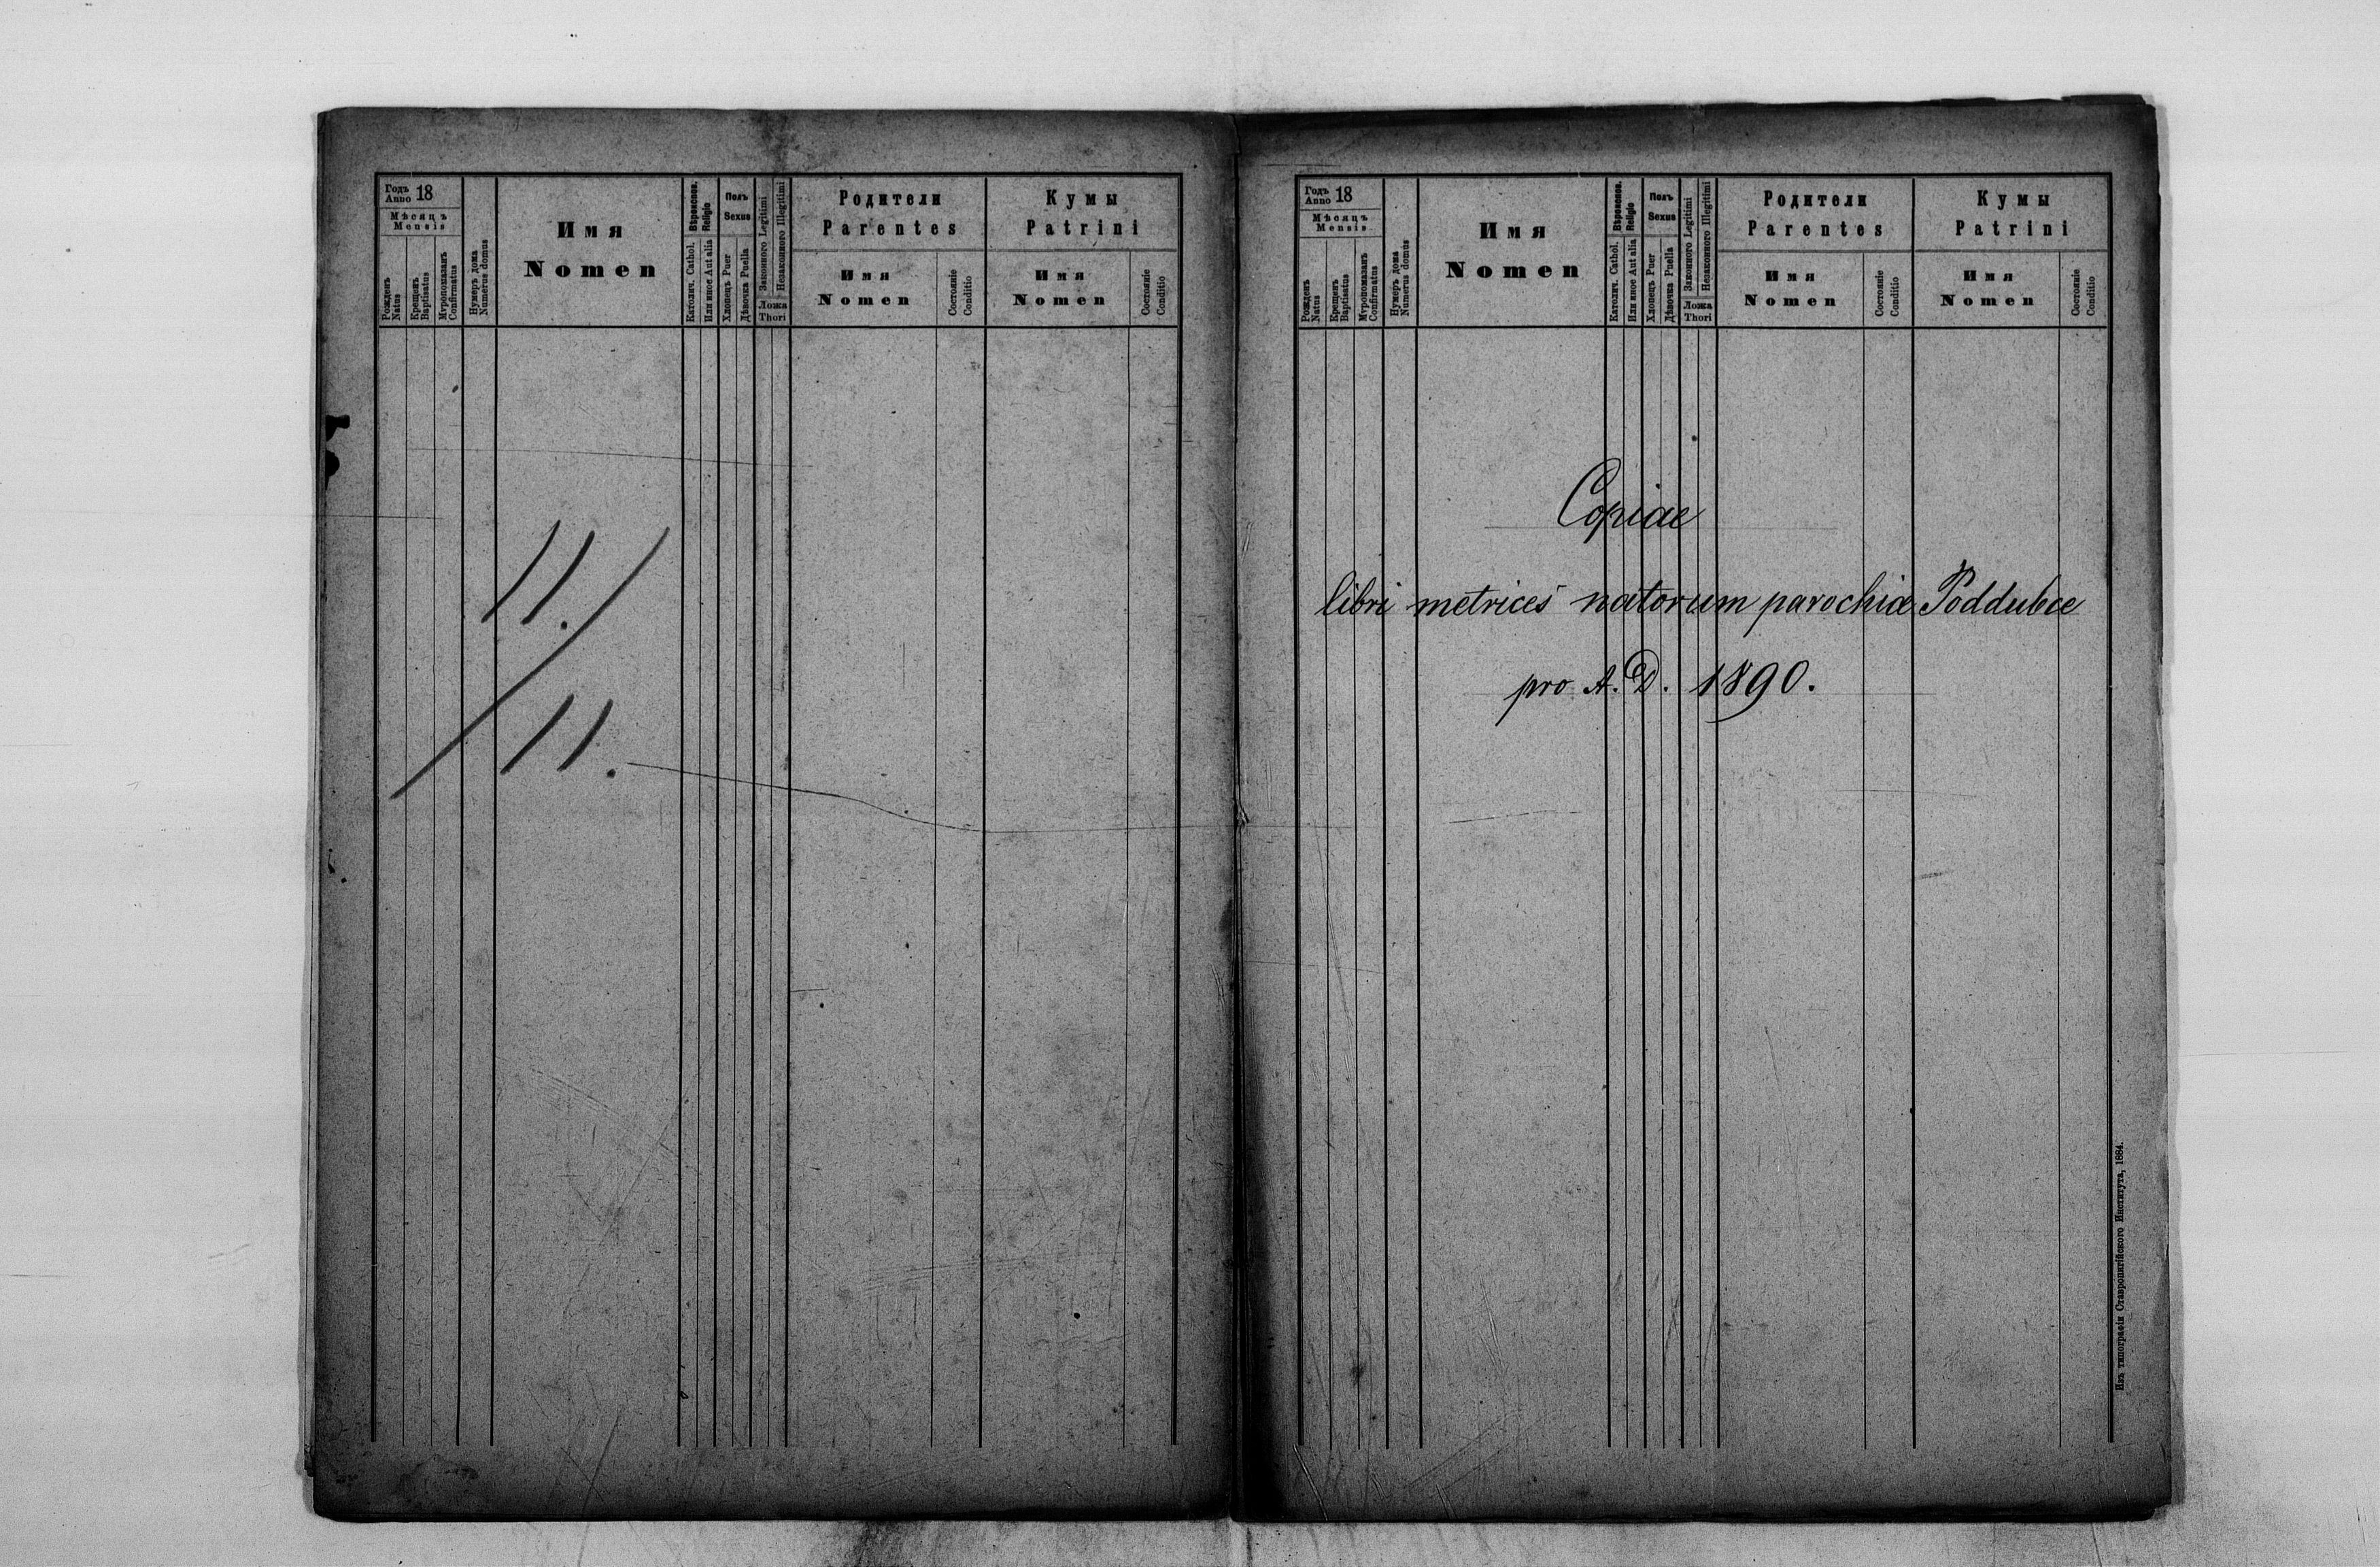 Годъ 18
Anno
Мѣсяцъ
Mensis
Рожденъ
Natus
Крещенъ
Baptisatus
Мѵропомазанъ
Confirmatus
Нумеръ дома
Numerus domus
Имя
Nomen
Вѣроиспов.
Religio
Католич. Cathol.
Или иное Aut alia
Полъ
Sexus
Хлопецъ Puer
Дѣвочка Puella
Законного Legitimi
Незаконного Illegitimi
Ложа
Thori
Родители
Parentes
Имя
Nomen
Состояніе
Conditio
Кумы
Patrini
Имя
Nomen
Состояніе
Conditio
11.
11.
Годъ 18
Anno
Мѣсяцъ
Mensis
Рожденъ
Natus
Крещенъ
Baptisatus
Мѵропомазанъ
Confirmatus
Нумеръ дома
Numerus domus
Имя
Nomen
Вѣроиспов.
Religio
Католич. Cathol.
Или иное Aut alia
Полъ
Sexus
Хлопецъ Puer
Дѣвочка Puella
Законного Legitimi
Незаконного Illegitimi
Ложа
Thori
Родители
Parentes
Имя
Nomen
Состояніе
Conditio
Кумы
Patrini
Имя
Nomen
Состояніе
Conditio
Copiae
libri metrices natorum parochiæ Poddubce
pro A. D. 1890.
Изъ типографіи Ставропигійского Института, 1884.